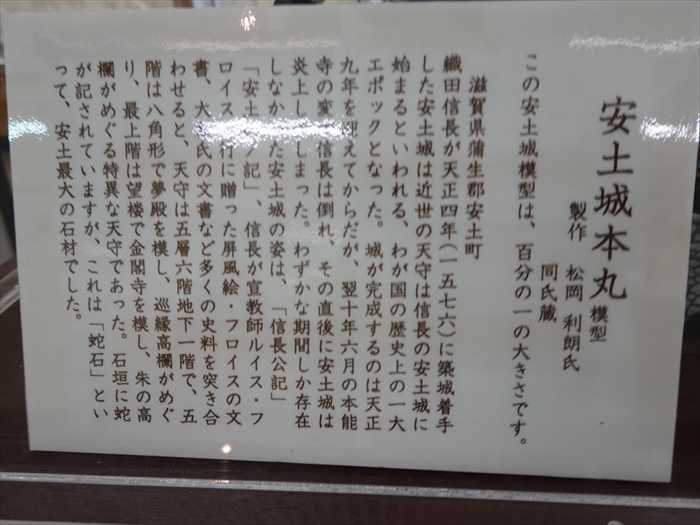 安土城本丸模型
製作 松岡 利朗氏
同氏蔵
この安土城模型は、百分の一の大きさです。
滋賀県蒲生郡安土町
織田信長が天正四年(一五七六)に築城着手
した安土城は近世の天守は信長の安土城に
始まるといわれる、わが国の歴史上の一大
エポックとなった。城が完成するのは天正
九年を迎えてからだが、翌十年六月の本能
寺の変で信長は倒れ、その直後に安土城は
炎上してしまった。わずかな期間しか存在
しなかった安土城の姿は、「信長公記」
「安土 ノ記」、信長が宣教師ルイス・フ
ロイス一行に贈った屏風絵・フロイスの文
書、大 氏の文書など多くの史料を突き合
わせると、天守は五層六階地下一階で、五
階は八角形で夢殿を模し、巡縁高欄がめぐ
り、最上階は望楼で金閣寺を模し、朱の高
欄がめぐる特異な天守であった。石垣に蛇
が記されていますが、これは「蛇石」とい
って、安土最大の石材でした。